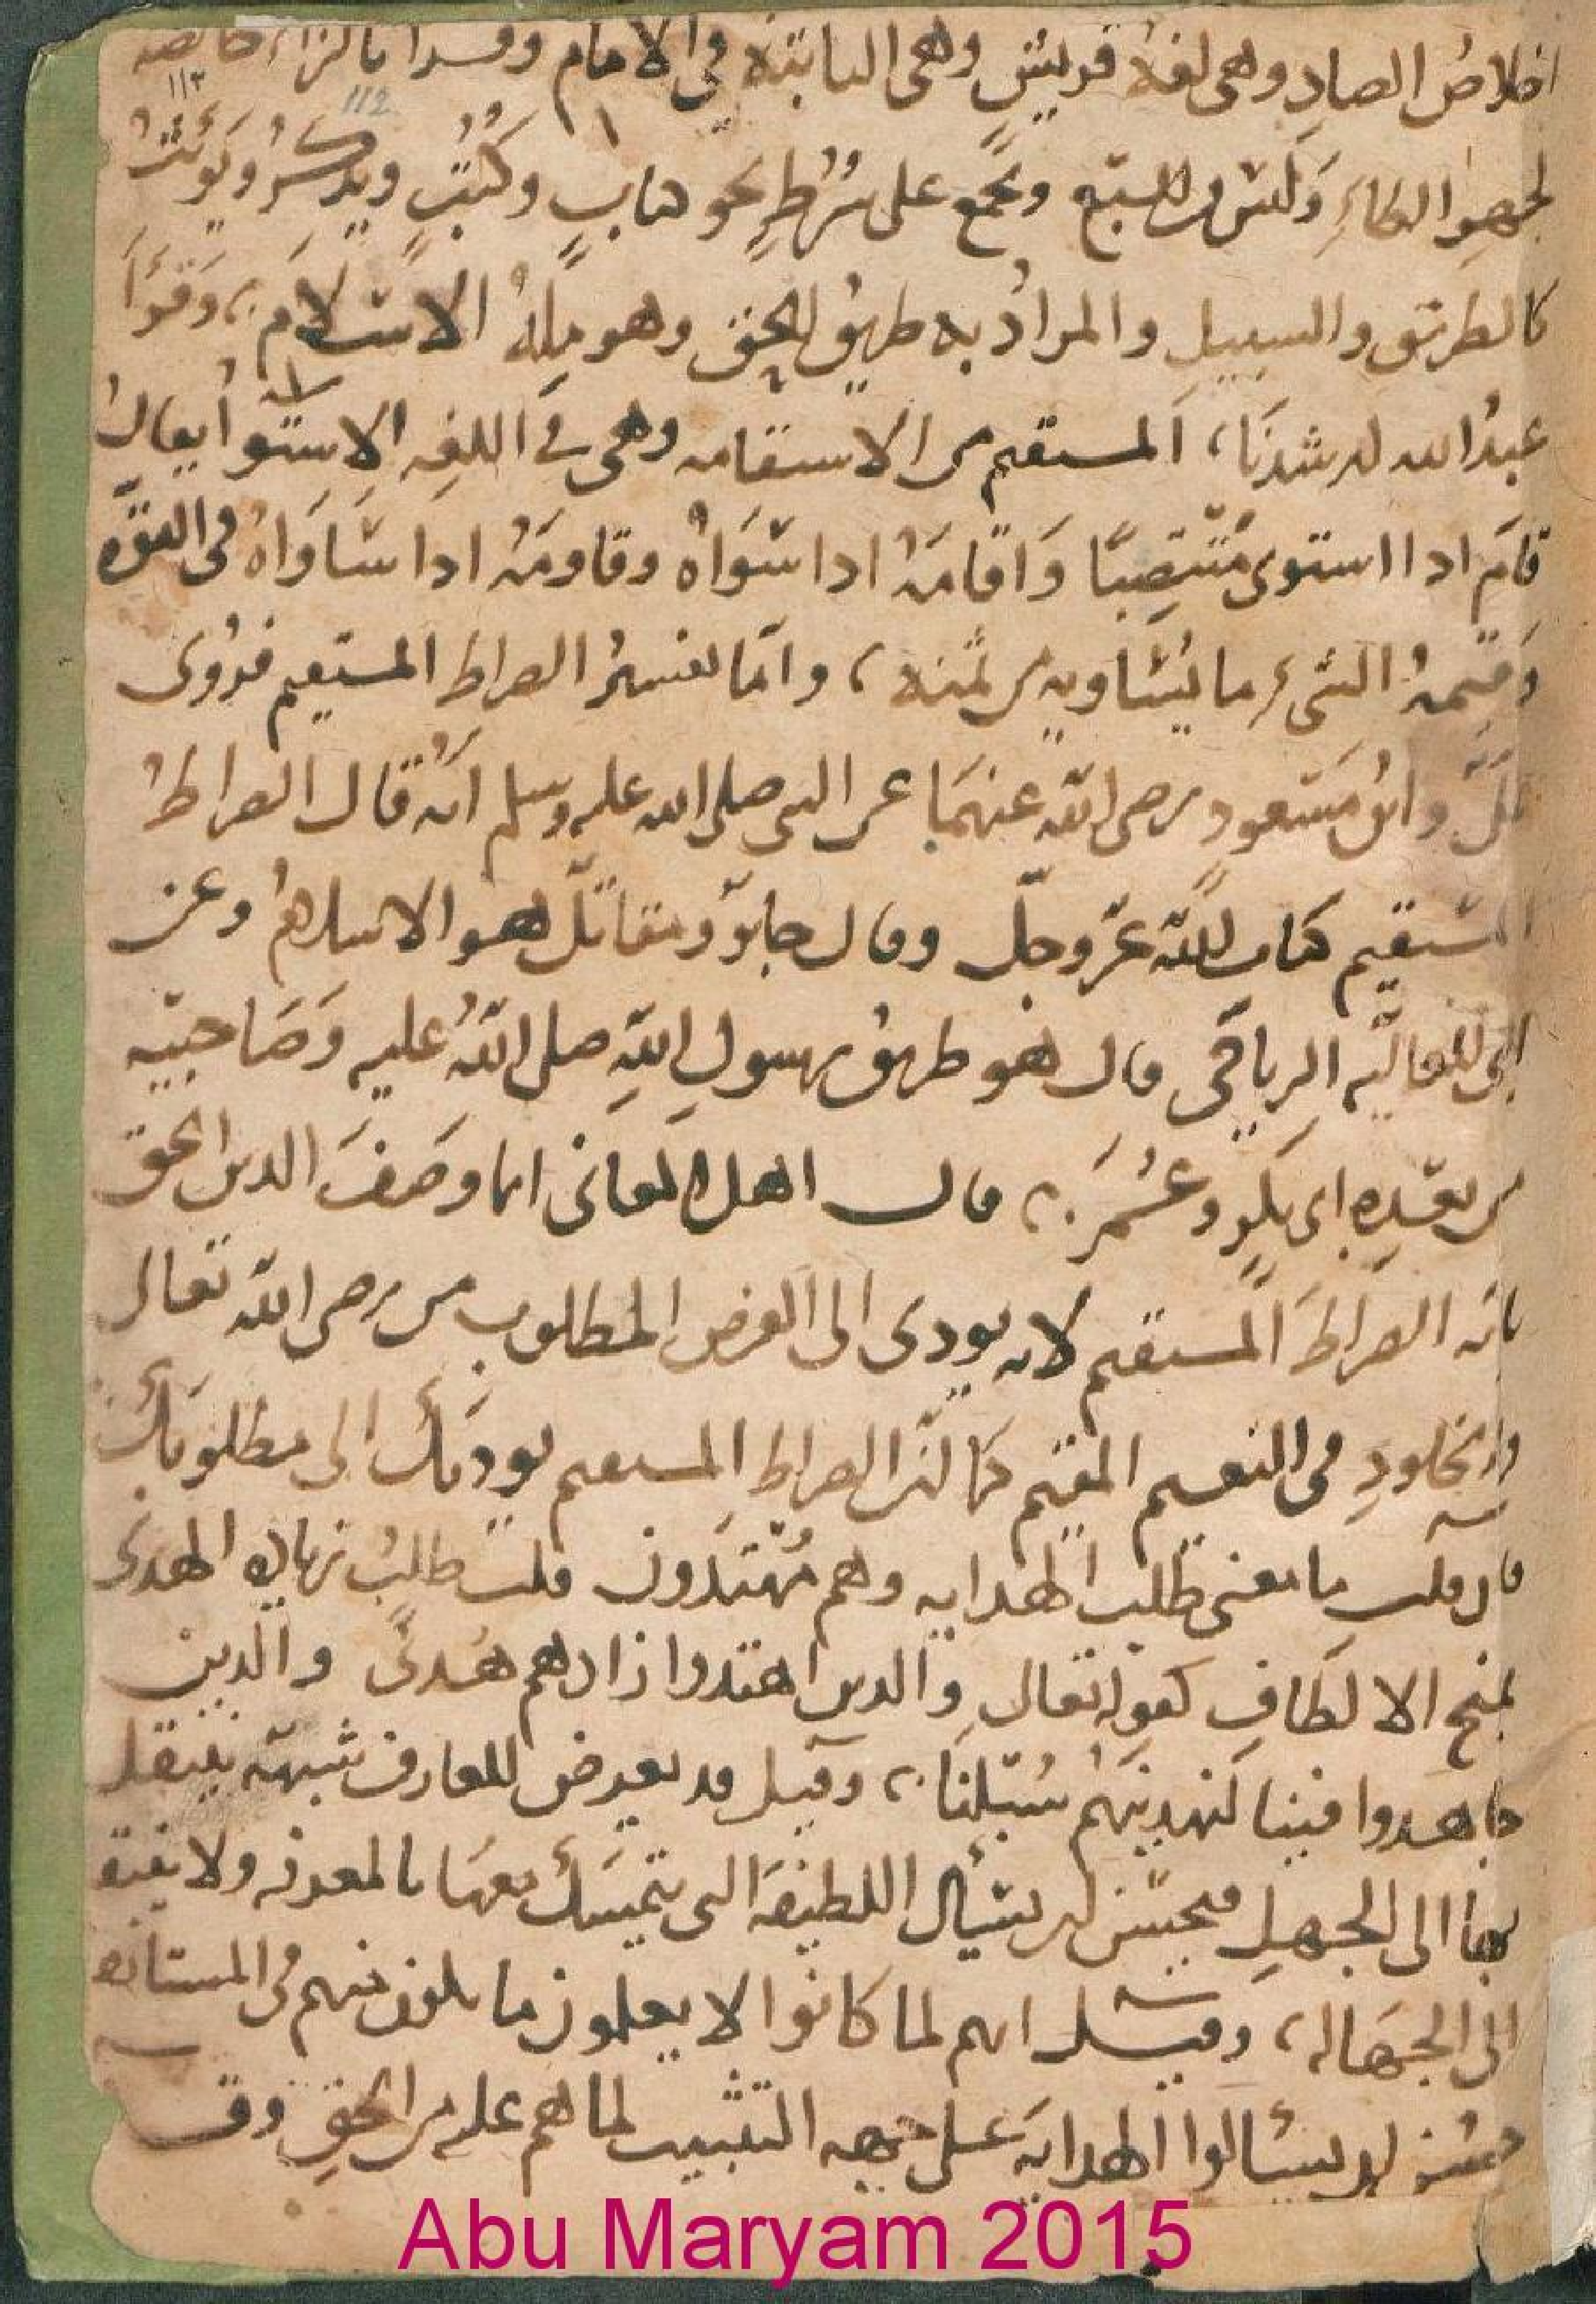 اخلاصُ الصادِ وهى لغةُ قريشٍ وهى الثابتة في الامام وقرا بالزاء خالصه
١١٣
112
لجهرِ الطاءِ وليس من السبع ويجمع على سُرُطٍ نحو كتابٍ وكُتُبٍ ويذكرُ ويُونثُ
كالطريق والسبيلِ والمرادُ به طريقُ الحق وهو مِلةُ الاسلام، وقرأ
عبدُ الله ارشدنَا، المستقيم من الاستقامه وهى في اللغهِ الاستوا يقالُ
قامَ اذا استوى مُنتصِبًا وَاقامَهُ اذا سَوَاهُ وقاومَهُ اذا سَاوَاهُ في القوّه
وَقيمةُ الشىءِ ما يُسَاويهِ من ثمنه، وامّا تفسيرُ الصراط المستقيم فرُوى
وابن مَسْعود رضى الله عنهمَا عن النبى صلى الله عليه وسلم انهُ قال الصراطُ
المستقيم كتاب الله عزّ وجلّ وقال جابرٌ ومقاتلٌ هو الاسلام وعن
ابى العاليه الرياحى قال هو طريقُ رسولِ اللهِ صلى اللهُ عليه وَصَاحبيه
من بعدِه ابى بكرٍ وعُمَرَ، قال اهل المعانى انما وصَفَ الدين الحق
بانه الصراطَ المستقيم لانه يودى الى الغرض المطلوب من رضى الله تعالى
والخلودِ في النعيم المقيم كما انّ الصراطِ المستقيم يوديكَ الى مطلوبك
فان قلت ما معنى طلب الهدايه وهم مُهْتدون قلت طلبُ زياده الهدى
بمنح الالطافِ كقوله تعالى والذين اهتدوا زادهم هُدىً والذين
جاهدوا فينا لنهدينهُم سُبُلنَا، وقيل قد يعرض للعارف شبهه ينتقل
بها الى الجهلِ فيحسُن ان يسأل اللطيفهَ التى يتمسك معهَا بالمعرفه ولا
الى الجهَاله، وقيل انهم لما كانوا لا يعلمون ما يكون منهم في المستانف
حسُن ان يسئالوا الهدايهَ على جهه التثبيت لما هم عليه من الحقِ وق
Abu Maryam 2015